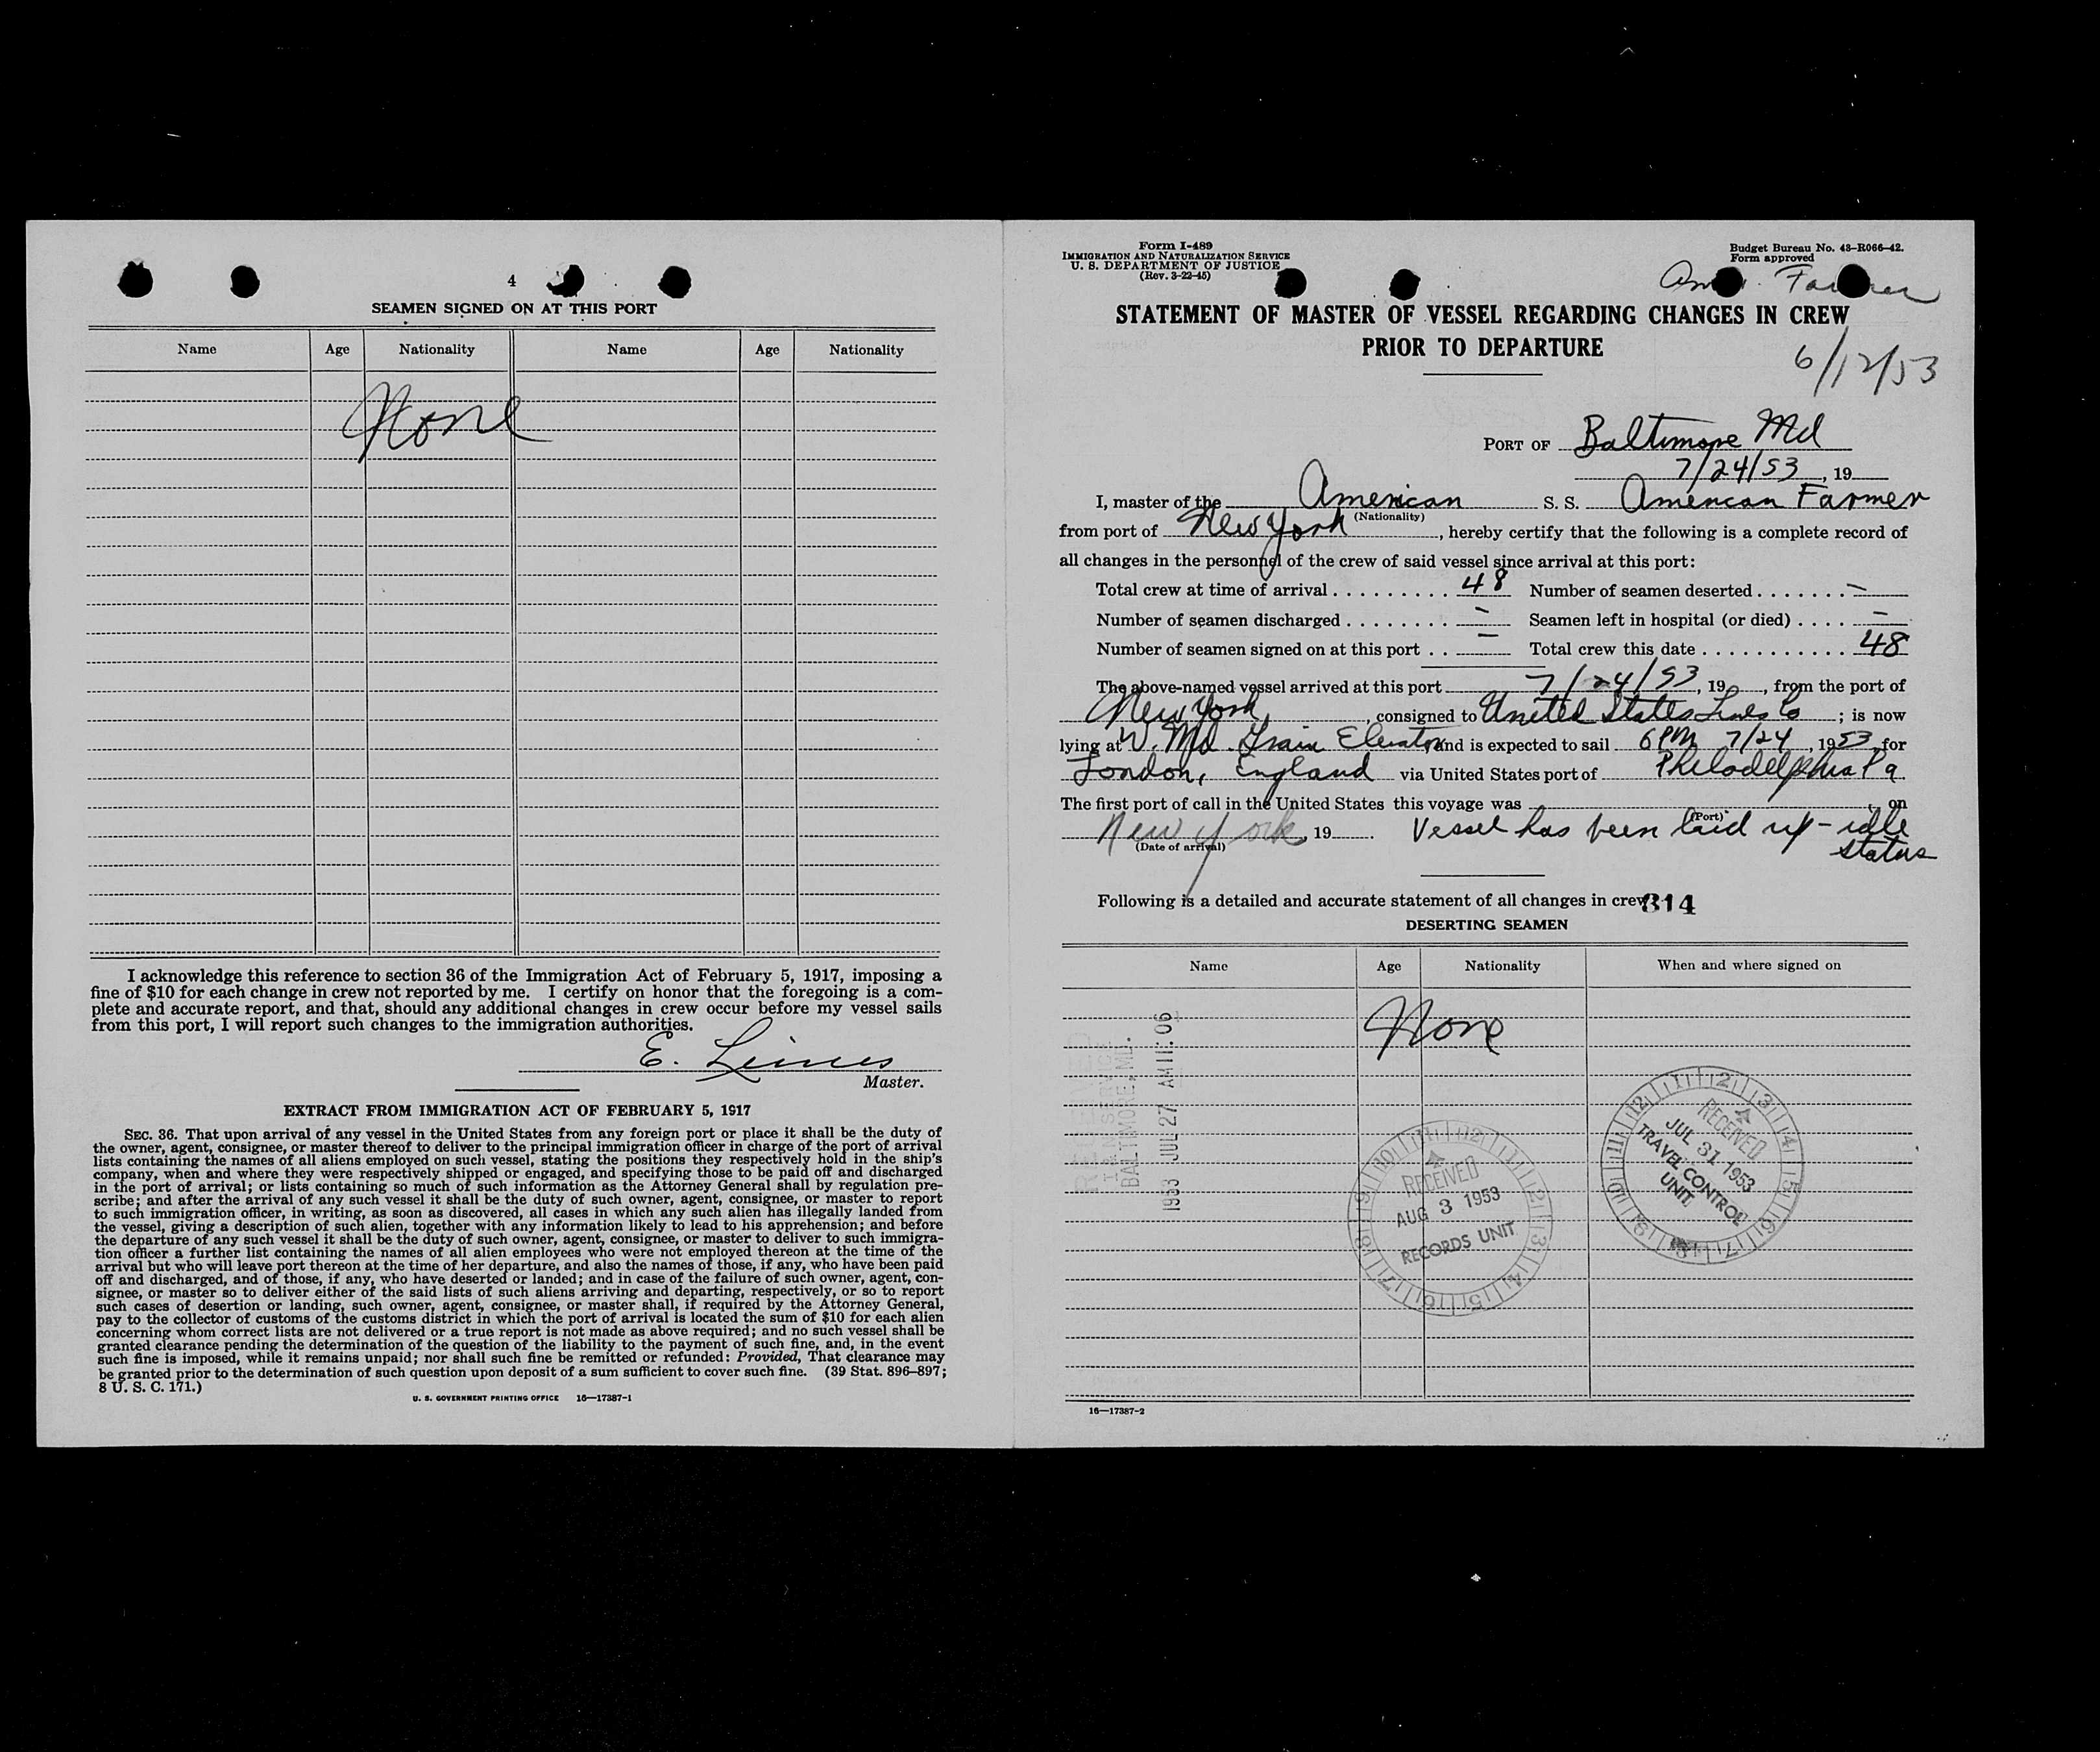 4
SEAMEN SIGNED ON AT THIS PORT
Name Age Nationality Name Age Nationality
None
I acknowledge this reference to section 36 of the Immigration Act of February 5, 1917, imposing a
fine of $10 for each change in crew not reported by me. I certify on honor that the foregoing is a com-
plete and accurate report, and that, should any additional changes in crew occur before my vessel sails
from this port, I will report such changes to the immigration authorities.
E.
Master.
EXTRACT FROM IMMIGRATION ACT OF FEBRUARY 5, 1917
SEC. 36. That upon arrival of any vessel in the United States from any foreign port or place it shall be the duty of
the owner, agent, consignee, or master thereof to deliver to the principal immigration officer in charge of the port of arrival
lists containing the names of all aliens employed on such vessel, stating the positions they respectively hold in the ship's
company, when and where they were respectively shipped or engaged, and specifying those to be paid off and discharged
in the port of arrival; or lists containing so much of such information as the Attorney General shall by regulation pre-
scribe; and after the arrival of any such vessel it shall be the duty of such owner, agent, consignee, or master to report
to such immigration officer, in writing, as soon as discovered, all cases in which any such alien has illegally landed from
the vessel, giving a description of such alien, together with any information likely to lead to his apprehension; and before
the departure of any such vessel it shall be the duty of such owner, agent, consignee, or master to deliver to such immigra-
tion officer a further list containing the names of all alien employees who were not employed thereon at the time of the
arrival but who will leave port thereon at the time of her departure, and also the names of those, if any, who have been paid
off and discharged, and of those, if any, who have deserted or landed; and in case of the failure of such owner, agent, con-
signee, or master so to deliver either of the said lists of such aliens arriving and departing, respectively, or so to report
such cases of desertion or landing, such owner, agent, consignee, or master shall, if required by the Attorney General,
pay to the collector of customs of the customs district in which the port of arrival is located the sum of $10 for each alien
concerning whom correct lists are not delivered or a true report is not made as above required; and no such vessel shall be
granted clearance pending the determination of the question of the liability to the payment of such fine, and, in the event
such fine is imposed, while it remains unpaid; nor shall such fine be remitted or refunded: Provided, That clearance may
be granted prior to the determination of such question upon deposit of a sum sufficient to cover such fine. (39 Stat. 896–897;
8 U. S. C. 171.)
U. S. GOVERNMENT PRINTING OFFICE 16—17387-1
Form I-489
IMMIGRATION AND NATURALIZATION SERVICE
U. S. DEPARTMENT OF JUSTICE
(Rev. 3-22-45)
Budget Bureau No. 43-R066-42.
Form approved
Farmer
STATEMENT OF MASTER OF VESSEL REGARDING CHANGES IN CREW
PRIOR TO DEPARTURE
6/12/53
PORT OF Baltimore Md
7/24/53, 19
I, master of the American S. S. American Farmer
(Nationality)
from port of New York, hereby certify that the following is a complete record of
all changes in the personnel of the crew of said vessel since arrival at this port:
Total crew at time of arrival .......... 48 Number of seamen deserted ....... –
Number of seamen discharged ........ – Seamen left in hospital (or died) .... –
Number of seamen signed on at this port .. – Total crew this date ........... 48
The above-named vessel arrived at this port 7/24/53, 19, from the port of
New York, consigned to United States Lines Co; is now
lying at W. Md. Grain Elevator and is expected to sail 6 PM 7/24, 1953, for
London, England via United States port of Philadelphia Pa
The first port of call in the United States this voyage was , on
(Port)
New York, 19. Vessel has been laid up – idle
(Date of arrival)
status
Following is a detailed and accurate statement of all changes in crew:
314
DESERTING SEAMEN
Name Age Nationality When and where signed on
None
BALTIMORE, MD.
1953 JUL 27 AM 11:06
RECEIVED
AUG 3 1953
RECORDS UNIT
RECEIVED
JUL 31 1953
TRAVEL CONTROL
UNIT
16—17387-2